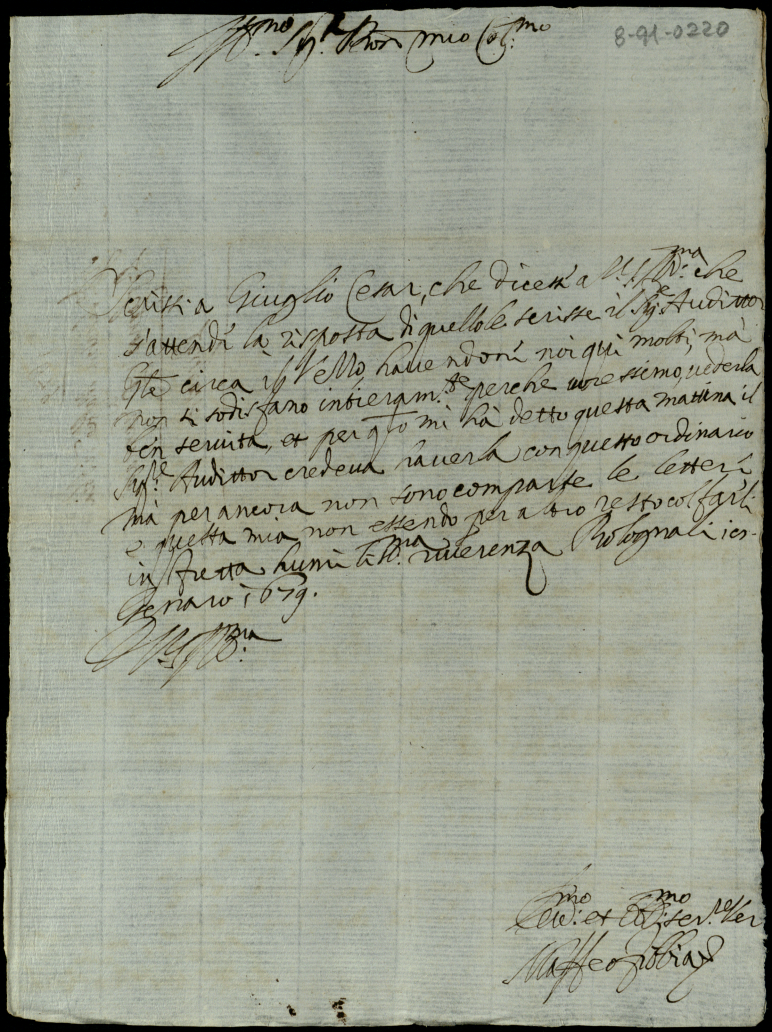 8-91-0220
Ill.mo Sig.r Pron mio Col.mo
Scrissi a Giuglio Cesar, che dicess'a V.S. Ill.ma che
s'attendi la risposta di quello le scrisse il Sig.re Auditor
circa il havendoni noi quì molti, mà
non ti sodisfano intieram.te perche voressimo, vederla
ben servita, et per q.to mi hà detto questa mattina il
Sig.re Auditor credeva haverla con questo ordinario
mà per ancora non sono comparse le letteri
e questa mia non essendo per altro resto col farli
in fretta humiliss.ma riverenza Bologna li
Genaro 1679.
D V.S. Ill.ma
Dev.mo et Obl.mo ser.re
Maffeo